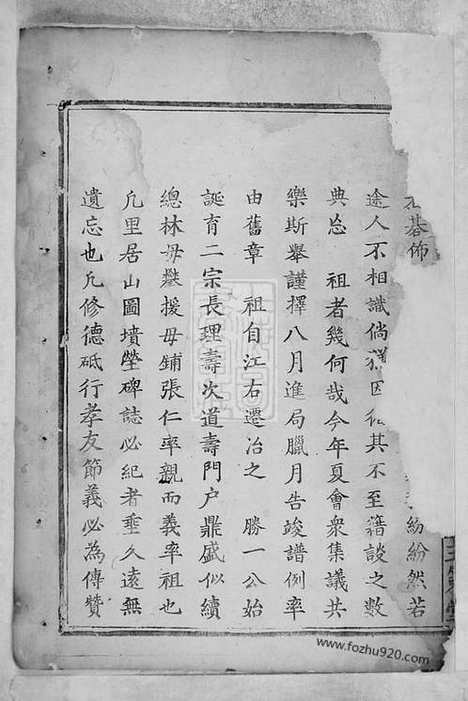 基佈紛紛然若
途人不相識倘其不至籍談之數
典忘　祖者幾何哉今年夏會眾集議共
樂斯舉謹擇八月進局臘月告竣譜例率
由舊章　祖自江右遷冶之　勝一公始
誕育二宗長理壽次道壽門戶鼎盛似續
總林毋攀援毋鋪張仁率親而義率祖也
凡里居山圖墳塋碑誌必紀者垂久遠無
遺忘也凡修德砥行孝友節義必為傳贊
www.fozhu920.com